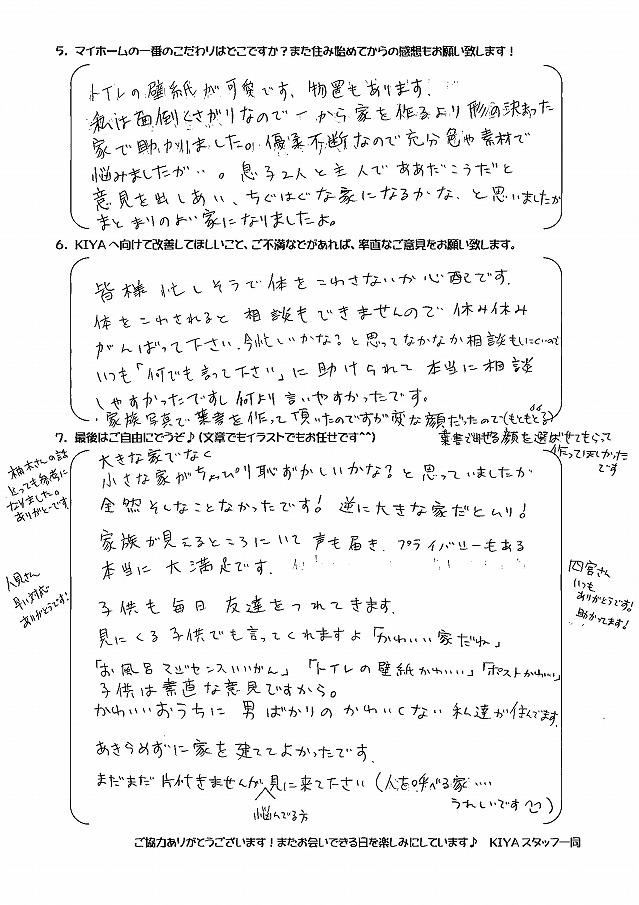 5. マイホームの一番のこだわりはどこですか？また住み始めてからの感想もお願い致します！
トイレの壁紙が可愛です、物置もあります.
私は面倒くさがりなので一から家を作るより形の決まった
家で助かりました。優柔不断なので充分色や素材で
悩みましたが…。息子2人と主人でああだこうだと
意見を出しあい、ちぐはぐな家になるかな、と思いましたが
まとまりのよい家になりましたよ。
6. KIYAへ向けて改善してほしいこと、ご不満などがあれば、率直なご意見をお願い致します。
皆様忙しそうで体をこわさないか心配です.
体をこわされると相談もできませんので休み休み
がんばって下さい.今忙しいかな?と思ってなかなか相談もしにくいので
いつも「何でも言って下さい」に助けられて本当に相談
しやすかったですし何より言いやすかったです。
・家族写真で葉書を作って頂いたのですが変な顔だったので(もともとる)
葉書で出せる顔を選ばせてもらって
作ってほしかった
です
7. 最後はご自由にどうぞ♪(文章でもイラストでもお任せです^^)
柚木さんの話
とっても参考に
なりました。
ありがとーです
大きな家でなく
小さな家がちょっぴり恥ずかしいかな?と思っていましたが
全然そんなことなかったです! 逆に大きな家だとムリ!
家族が見えるところにいて声も届き、プライバシーもある
本当に大満足です.
人見さん
早い対応
ありがとうです!
四宮さん
いつも
ありがとうです!
助かってます!
子供も毎日友達をつれてきます.
見にくる子供でも言ってくれますよ「かわいい家だね」
「お風呂マジセンスいいかん」「トイレの壁紙かわいい」「ポストかわいい」
子供は素直な意見ですから。
かわいいおうちに男ばかりのかわいくない私達が住んでます.
あきらめずに家を建ててよかったです.
まだまだ片付きませんが見に来て下さい(人を呼べる家....
悩んでる方
うれしいです)
ご協力ありがとうございます！またお会いできる日を楽しみにしています♪ KIYAスタッフ一同